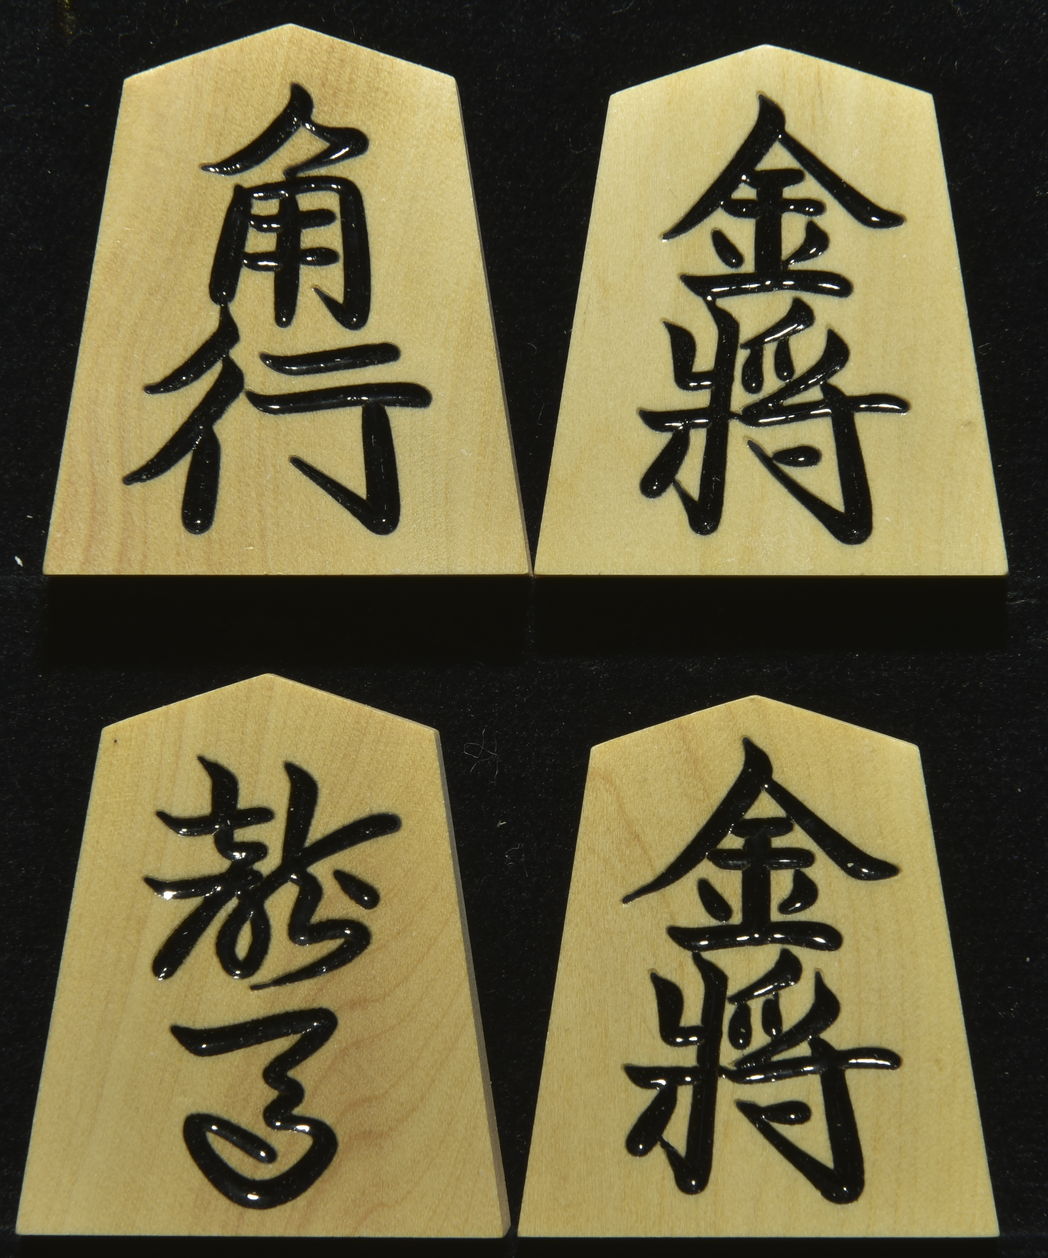 角行
金將
龍馬
金將